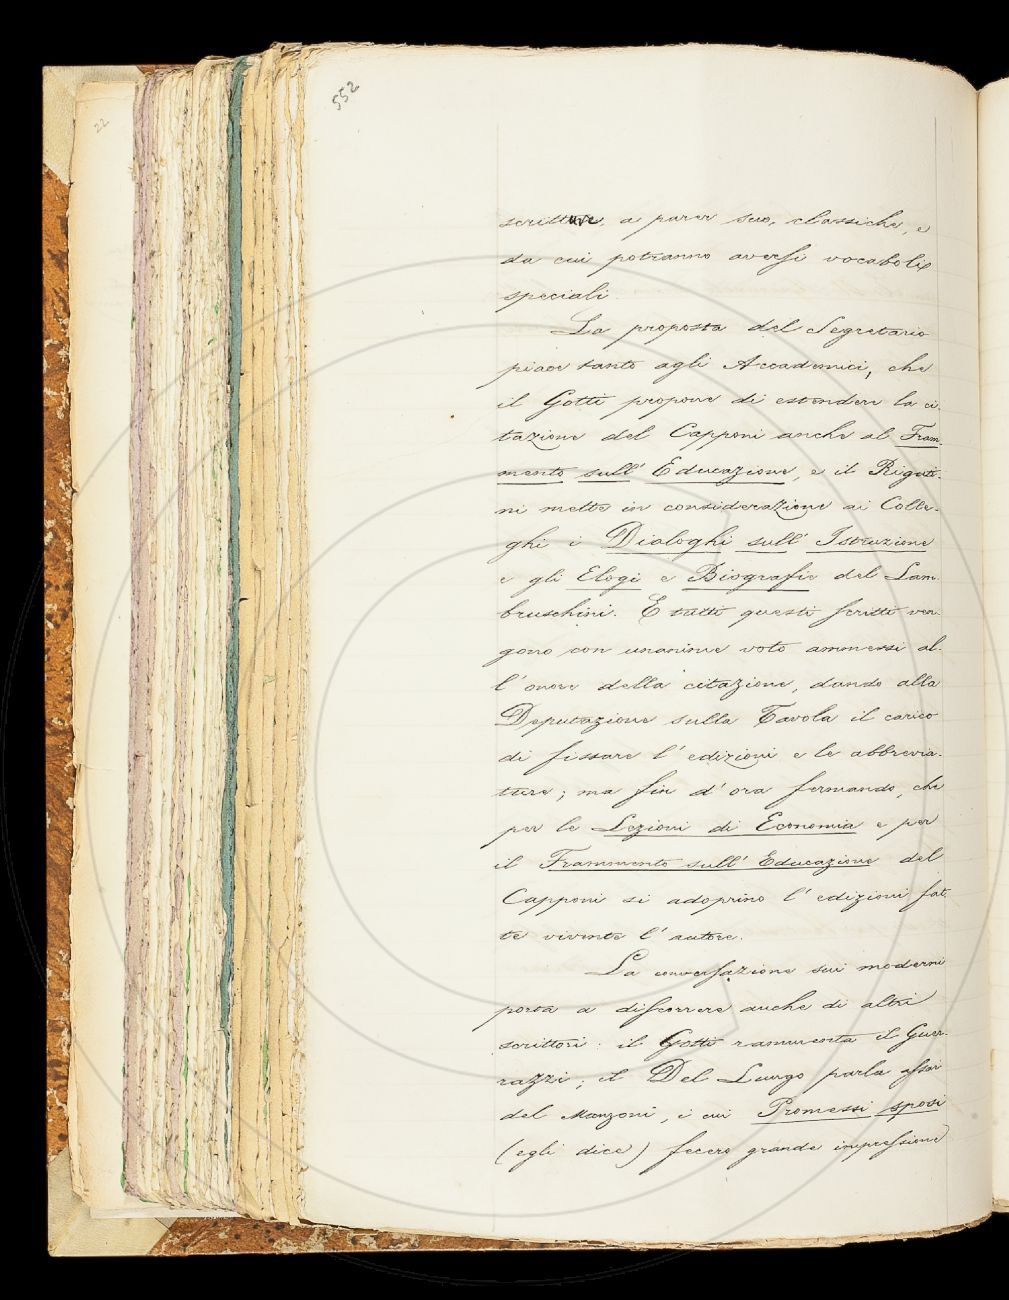 552
22
scritture, a parer suo, classiche, e
da cui potranno aversi vocaboli
speciali.
La proposta del Segretario
piace tanto agli Accademici, che
il Gotti propone di estendere la ci-
tazione del Capponi anche al Fram
mento sull' Educazione, e il Riguti-
ni mette in considerazione ai Colle-
ghi i Dialoghi sull' Istruzione
e gli Elogi e Biografie del Lam
bruschini. E tutti questi scritti ven-
gono con unanime voto ammessi al-
l'onore della citazione, dando alla
Deputazione sulla Tavola il carico
di fissare l'edizioni e le abbrevia-
ture; ma fin d'ora fermando, che
per le Lezioni di Economia e per
il Frammento sull' Educazione del
Capponi si adoprino l'edizioni fat-
te vivente l'autore.
La conversazione sui moderni
porta a discorrere anche di altri
scrittori: il Gotti rammenta il Guer-
razzi; il Del Lungo parla assai
del Manzoni, i cui Promessi sposi
(egli dice) fecero grande impressione